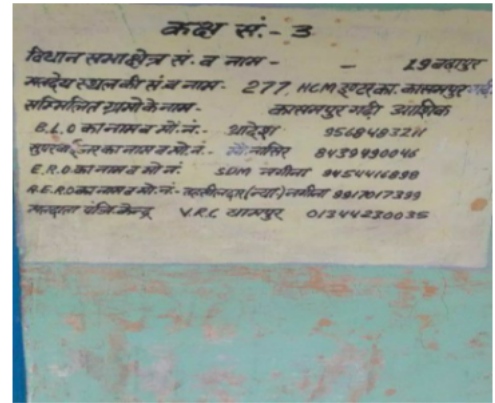 कक्ष सं.- 3
विधान सभा क्षेत्र सं. व नाम - - 19 बढ़ापुर
मतदेय स्थल की सं व नाम - 277, HCM इण्टर का. कासमपुर गढ़ी
सम्मिलित ग्रामो के नाम - कासमपुर गढ़ी आंशिक
B.L.O का नाम व मो.नं.- आदेश 9568483211
सुपरवाईजर का नाम व मो.नं.- मौ. नासिर 8439490046
E.R.O का नाम व मो नं. SDM नगीना 9454416898
A.E.R.O का नाम व मो.नं.- तहसीलदार (न्या.) नगीना 9917017399
मतदाता पंजि. केन्द्र V.R.C धामपुर 01344230035